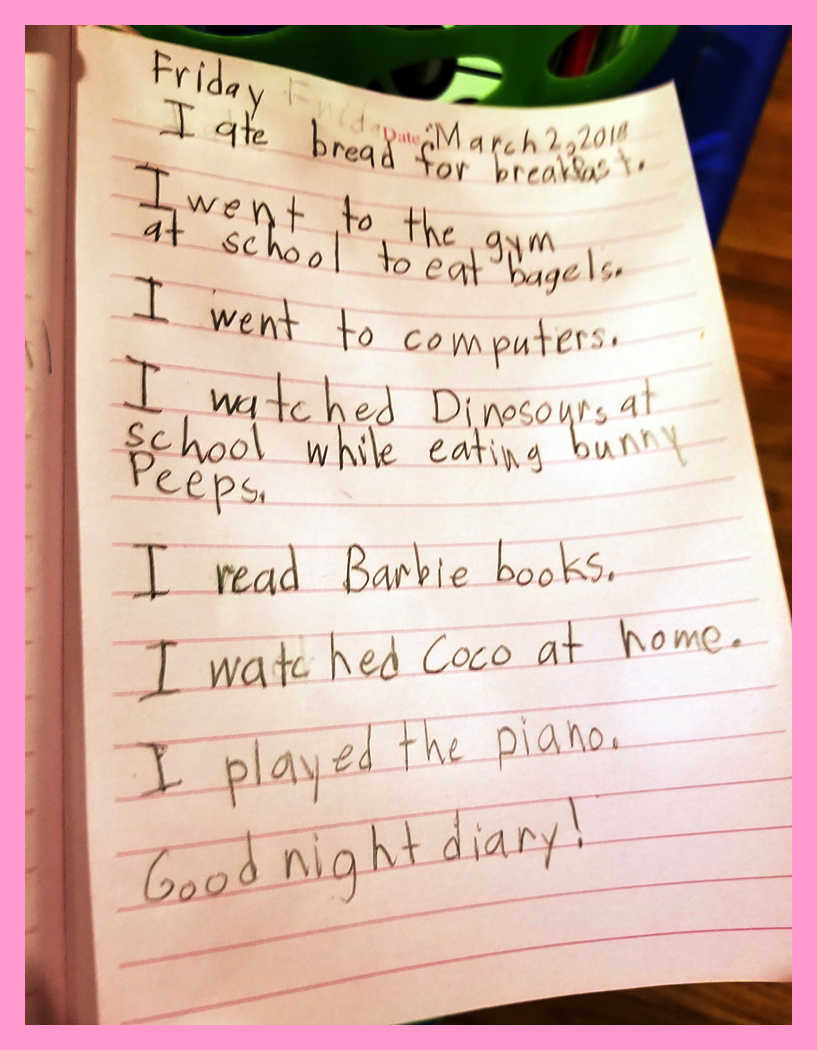 Friday
Date: March 2, 2018
I ate bread for breakfast.
I went to the gym
at school to eat bagels.
I went to computers.
I watched Dinosours at
school while eating bunny
Peeps.
I read Barbie books.
I watched Coco at home.
I played the piano.
Good night diary!